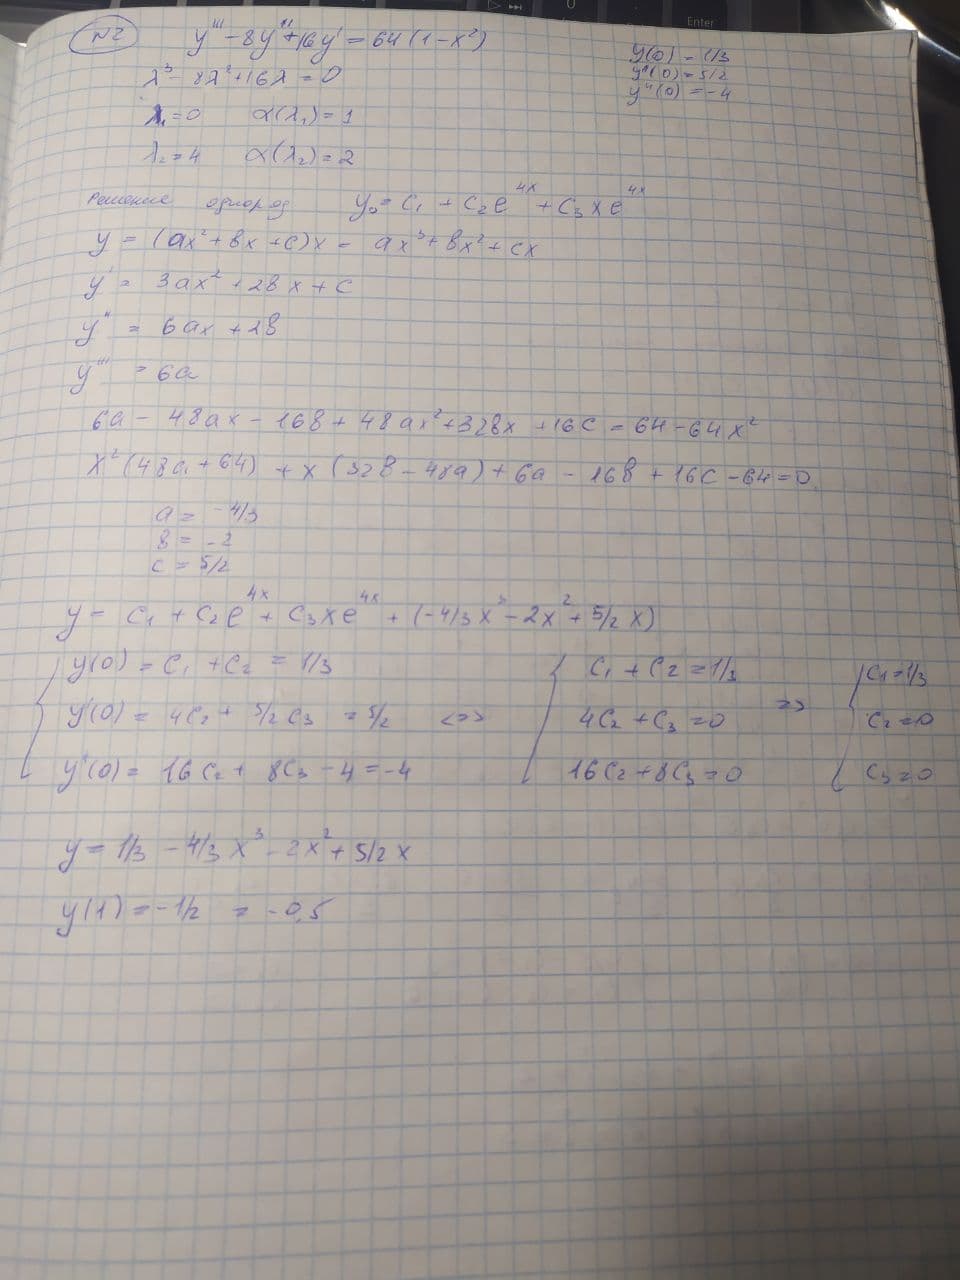 Enter
N2 y''' - 8y'' + 16y' = 64(1 - x²)
y(0) = 1/3
y'(0) = 5/2
y''(0) = -4
λ³ - 8λ² + 16λ = 0
λ₁ = 0 α(λ₁) = 1
λ₂ = 4 α(λ₂) = 2
Решение однород y₀ = C₁ + C₂e^4x + C₃xe^4x
y = (ax² + bx + c)x = ax³ + bx² + cx
y' = 3ax² + 2bx + c
y'' = 6ax + 2b
y''' = 6a
6a - 48ax - 16b + 48ax² + 32bx + 16c = 64 - 64x²
x²(48a + 64) + x(32b - 48a) + 6a - 16b + 16c - 64 = 0
a = -4/3
b = -2
c = 5/2
y = C₁ + C₂e^4x + C₃xe^4x + (-4/3x³ - 2x² + 5/2x)
y(0) = C₁ + C₂ = 1/3 C₁ + C₂ = 1/3 C₁ = 1/3
y'(0) = 4C₂ + 5/2 C₃ = 5/2 <=> 4C₂ + C₃ = 0 => C₂ = 0
y''(0) = 16C₂ + 8C₃ - 4 = -4 16C₂ + 8C₃ = 0 C₃ = 0
y = 1/3 - 4/3x³ - 2x² + 5/2x
y(1) = -1/2 = -0,5